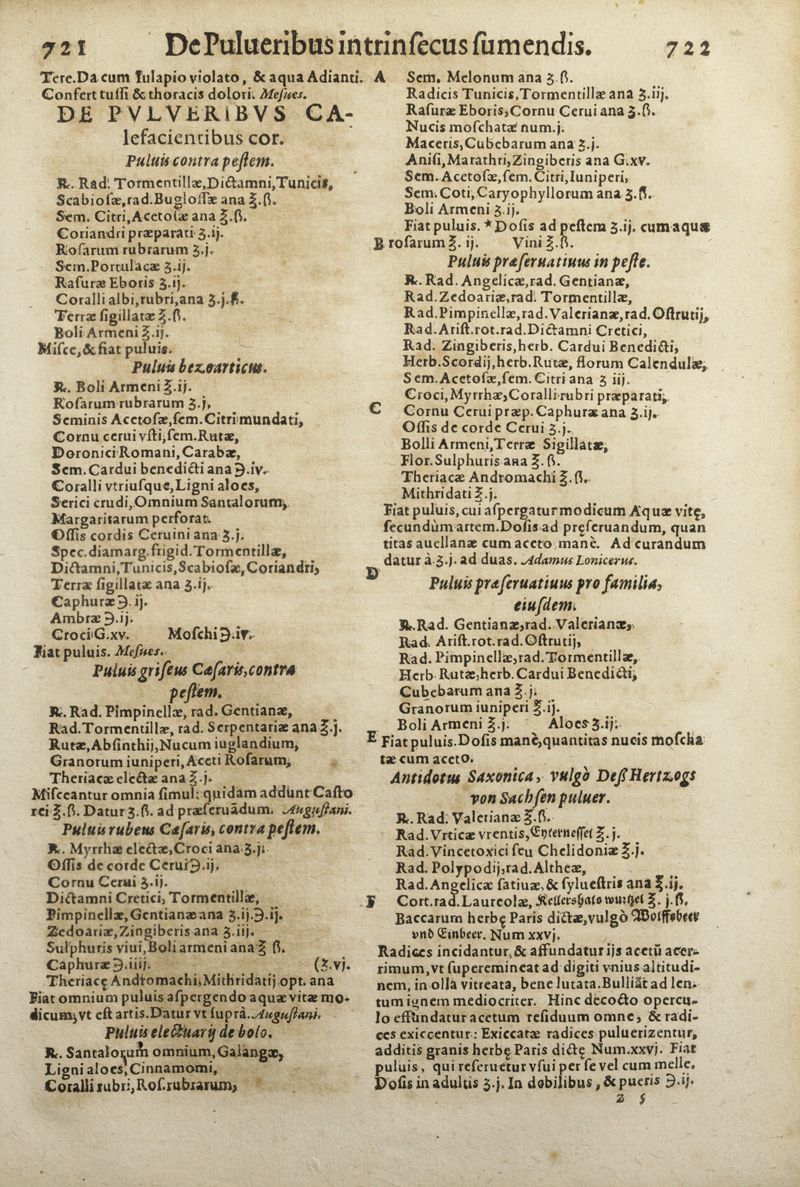 721 De Pulueribus intrinſecus ſumendis. 722
Tere. Da cum Iulapio violato, & aqua Adianti.
Confert tuſſi & thoracis dolori. Meſues.
DE PVLVERIBVS CA-
lefacientibus cor.
Puluis contra peſtem.
℞. Rad. Tormentillæ, Dictamni, Tunicis,
Scabioſæ, rad. Bugloſſæ ana ℥.ß.
Sem. Citri, Acetoſæ ana ℥.ß.
Coriandri præparati ʒ.ij.
Roſarum rubrarum ʒ.j.
Sem. Portulacæ ʒ.ij.
Raſuræ Eboris ʒ.ij.
Coralli albi, rubri, ana ʒ.j.ß.
Terræ ſigillatæ ℥.ß.
Boli Armeni ℥.ij.
Miſce, & fiat puluis.
Puluis bezoarticus.
℞. Boli Armeni ℥.ij.
Roſarum rubrarum ʒ.j,
Seminis Acetoſæ, ſem. Citri mundati,
Cornu cerui vſti, ſem. Rutæ,
Doronici Romani, Carabæ,
Sem. Cardui benedicti ana ℈.iv.
Coralli vtriuſque, Ligni aloes,
Serici crudi, Omnium Santalorum,
Margaritarum perforat.
Oſſis cordis Ceruini ana ʒ.j.
Spec. diamarg. frigid. Tormentillæ,
Dictamni, Tunicis, Scabioſæ, Coriandri,
Terræ ſigillatæ ana ʒ.ij.
Caphuræ ℈.ij.
Ambræ ℈.ij.
Croci G.xv. Moſchi ℈.iv.
Fiat puluis. Meſues.
Puluis griſeus Cæſaris, contra
peſtem.
℞. Rad. Pimpinellæ, rad. Gentianæ,
Rad. Tormentillæ, rad. Serpentariæ ana ℥.j.
Rutæ, Abſinthij, Nucum iuglandium,
Granorum iuniperi, Aceti Roſarum,
Theriacæ electæ ana ℥.j.
Miſceantur omnia ſimul: quidam addunt Caſto
rei ℥.ß. Datur ʒ.ß. ad præſeruādum. Auguſtani.
Puluis rubeus Cæſaris, contra peſtem.
℞. Myrrhæ electæ, Croci ana ʒ.j.
Oſſis de corde Cerui ℈.ij,
Cornu Cerui ʒ.ij.
Dictamni Cretici, Tormentillæ,
Pimpinellæ, Gentianæ ana ʒ.ij.℈.ij.
Zedoariæ, Zingiberis ana ʒ.iij.
Sulphuris viui, Boli armeni ana ℥ ß.
Caphuræ ℈.iiij. (ʒ.vj.
Theriacę Andromachi, Mithridatij opt. ana
Fiat omnium puluis aſpergendo aquæ vitæ mo-
dicum, vt eſt artis. Datur vt ſuprà. Auguſtani.
Puluis electuarij de bolo.
℞. Santalorum omnium, Galangæ,
Ligni aloes, Cinnamomi,
Coralli rubri, Roſ. rubrarum,
A Sem. Melonum ana ʒ.ß.
Radicis Tunicis, Tormentillæ ana ʒ.iij.
Raſuræ Eboris, Cornu Cerui ana ʒ.ß.
Nucis moſchatæ num.j.
Maceris, Cubebarum ana ʒ.j.
Aniſi, Marathri, Zingiberis ana G.xv.
Sem. Acetoſæ, ſem. Citri, Iuniperi,
Sem. Coti, Caryophyllorum ana ʒ.ß.
Boli Armeni ʒ.ij.
Fiat puluis. * Doſis ad peſtem ʒ.ij. cum aquæ
B roſarum ℥. ij. Vini ℥.ß.
Puluis præſeruatiuus in peſte.
℞. Rad. Angelicæ, rad. Gentianæ,
Rad. Zedoariæ, rad. Tormentillæ,
Rad. Pimpinellæ, rad. Valerianæ, rad. Oſtrutij,
Rad. Ariſt. rot. rad. Dictamni Cretici,
Rad. Zingiberis, herb. Cardui Benedicti,
Herb. Scordij, herb. Rutæ, florum Calendulæ,
Sem. Acetoſæ, ſem. Citri ana ʒ iij.
Croci, Myrrhæ, Coralli rubri præparati,
C Cornu Cerui præp. Caphuræ ana ʒ.ij.
Oſſis de corde Cerui ʒ.j.
Bolli Armeni, Terræ Sigillatæ,
Flor. Sulphuris ana ℥.ß.
Theriacæ Andromachi ℥.ß.
Mithridati ℥.j.
Fiat puluis, cui aſpergatur modicum Aquæ vitę,
ſecundùm artem. Doſis ad pręſeruandum, quan
titas auellanæ cum aceto manè. Ad curandum
datur à ʒ.j. ad duas. Adamus Lonicerus.
D
Puluis præſeruatiuus pro familia,
eiuſdem.
℞. Rad. Gentianæ, rad. Valerianæ,
Rad. Ariſt. rot. rad. Oſtrutij,
Rad. Pimpinellæ, rad. Tormentillæ,
Herb. Rutæ, herb. Cardui Benedicti,
Cubebarum ana ℥.j.
Granorum iuniperi ℥.ij.
Boli Armeni ℥.j. Aloes ʒ.ij.
E Fiat puluis. Doſis manè, quantitas nucis moſcha
tæ cum aceto.
Antidotus Saxonica, vulgò Deß Hertzogs
von Sachſen puluer.
℞. Rad. Valerianæ ℥.ß.
Rad. Vrticæ vrentis, Eyterneſſel ℥.j.
Rad. Vincetoxici ſeu Chelidoniæ ℥.j.
Rad. Polypodij, rad. Altheæ,
Rad. Angelicæ ſatiuæ, & ſylueſtris ana ℥.ij.
F Cort. rad. Laureolæ, Kellershals wurtzel ℥. j.ß.
Baccarum herbę Paris dictæ, vulgò Wolffsbeer
vnd Einbeer. Num xxvj.
Radices incidantur, & affundatur ijs acetū acer-
rimum, vt ſuperemineat ad digiti vnius altitudi-
nem, in olla vitreata, bene lutata. Bulliāt ad len-
tum ignem mediocriter. Hinc decocto opercu-
lo effundatur acetum reſiduum omne, & radi-
ces exiccentur: Exiccatæ radices puluerizentur,
additis granis herbę Paris dictę Num.xxvj. Fiat
puluis, qui reſeruetur vſui per ſe vel cum melle.
Doſis in adultis ʒ.j. In debilibus, & pueris ℈.ij.
Z 5